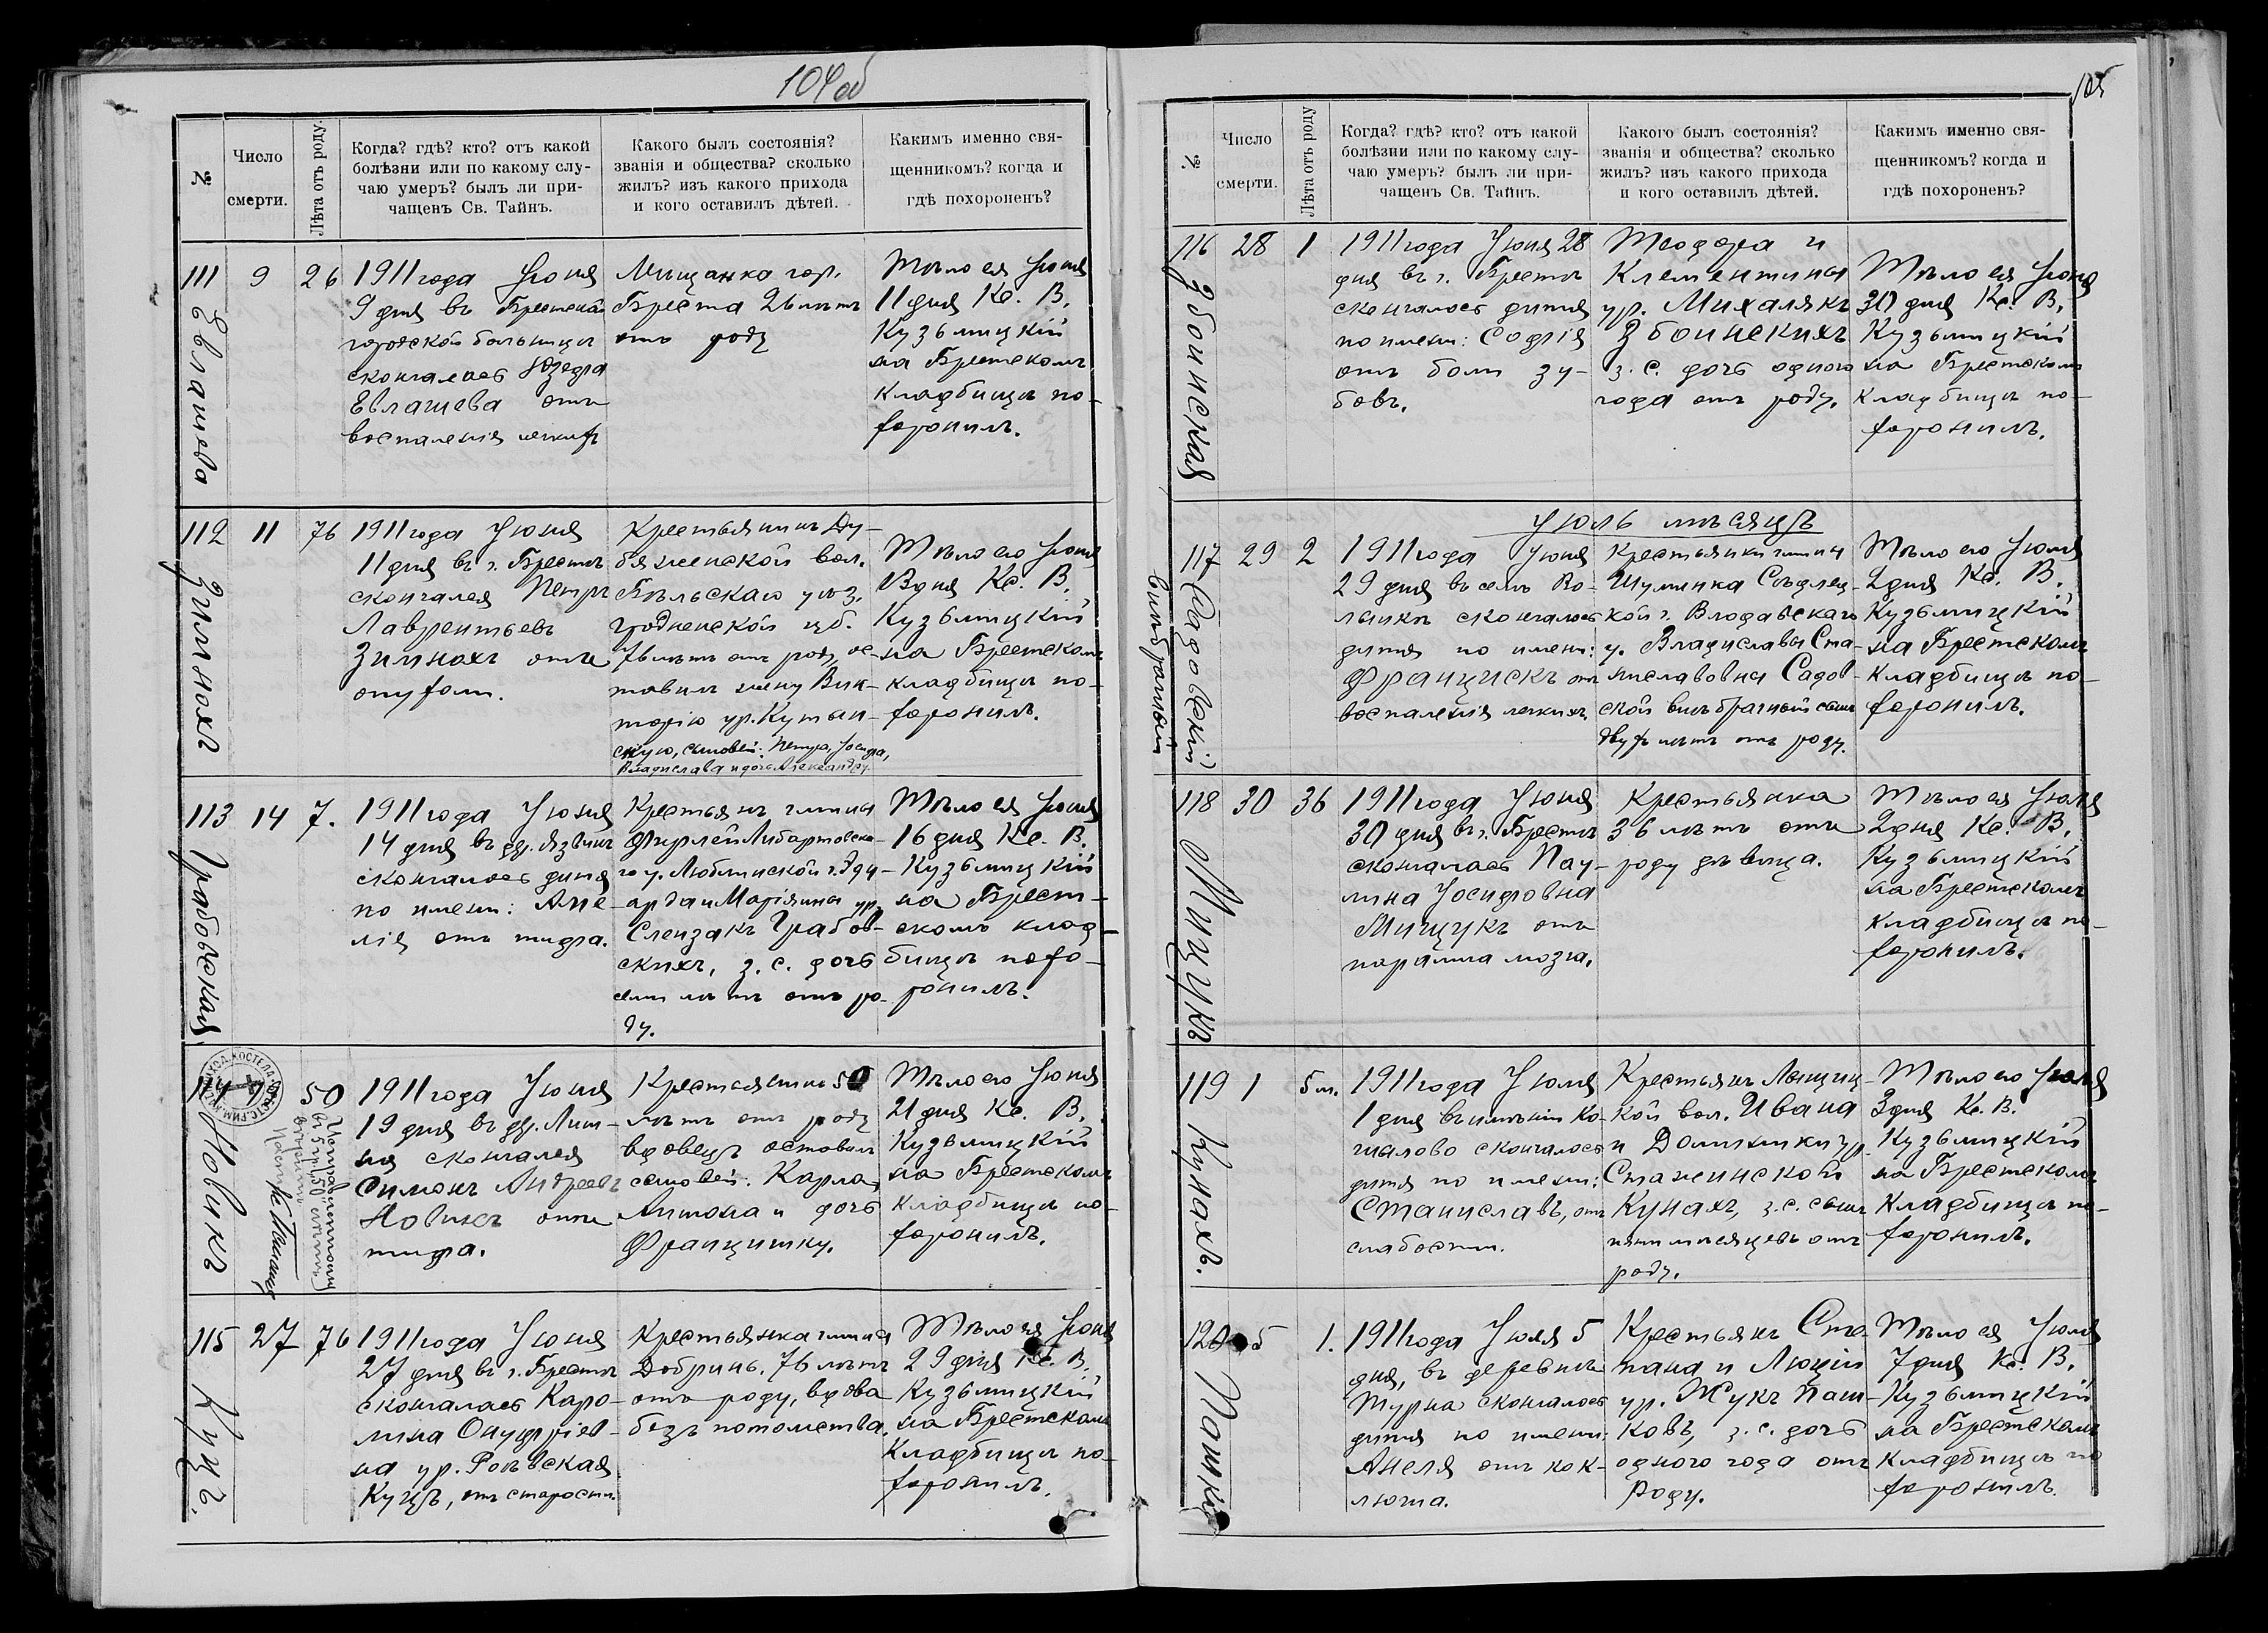 104об
№
Число
смерти.
Лѣта отъ роду.
Когда? гдѣ? кто? отъ какой
болѣзни или по какому слу-
чаю умеръ? былъ ли при-
чащенъ Св. Тайнъ.
Какого былъ состоянія?
званія и общества? сколько
жилъ? изъ какого прихода
и кого оставилъ дѣтей.
Какимъ именно свя-
щенникомъ? когда и
гдѣ похороненъ?
111
Евлашева
9
26
1911 года Іюня
9 дня въ Брестской
городской больницѣ
скончалась Юзефа
Евлашева отъ
воспаленія легкихъ
Мѣщанка гор.
Бреста 26 лѣтъ
отъ роду
Тѣло ея Іюня
11 дня Кс. В.
Кузьмицкій
на Брестскомъ
кладбищѣ по-
хоронилъ.
112
Зимнохъ
11
76
1911 года Іюня
11 дня въ г. Брестѣ
скончался Петръ
Лаврентьевъ
Зимнохъ отъ
опухоли.
Крестьянинъ Ду-
бяженской вол.
Бѣльскаго уѣз.
Гродненской губ.
76 лѣтъ отъ роду, ос-
тавилъ жену Вик-
торію ур. Кутын-
скую, сыновей: Петра, Іосифа,
Владислава и дочь Александру.
Тѣло его Іюня
13 дня Кс. В.
Кузьмицкій
на Брестскомъ
кладбищѣ по-
хоронилъ.
113
Грабовская
14
7.
1911 года Іюня
14 дня въ дер. Язвинѣ
скончалось дитя
по имени: Аме-
лія отъ тифа.
Крестьянъ гмины
Фирлей Любартовска-
го у. Люблинской г. Эду-
арда и Маріянны ур.
Слензакъ Грабов-
скихъ, з. с. дочь
семи лѣтъ отъ ро-
ду.
Тѣло ея Іюня
16 дня Кс. В.
Кузьмицкій
на Брест-
скомъ клад-
бищѣ похо-
ронилъ.
114
Новикъ
50
1911 года Іюня
19 дня въ дер. Лит-
на скончался
Симонъ Андреевъ
Новикъ отъ
тифа.
Крестьянинъ 50
лѣтъ отъ роду
вдовецъ оставилъ
сыновей: Карла,
Антона и дочь
Францишку.
Тѣло его Іюня
21 дня Кс. В.
Кузьмицкій
на Брестскомъ
кладбищѣ по-
хоронилъ.
115
Куцъ.
27
76
1911 года Іюня
27 дня въ г. Брестѣ
скончалась Каро-
лина Онуфріев-
на ур. Раевская
Куцъ, отъ старости.
Крестьянка гмины
Добрынь. 76 лѣтъ
отъ роду, вдова
безъ потомства.
Тѣло ея Іюня
29 дня Кс. В.
Кузьмицкій
на Брестскомъ
кладбищѣ по-
хоронилъ.
105
№
Число
смерти.
Лѣта отъ роду
Когда? гдѣ? кто? отъ какой
болѣзни или по какому слу-
чаю умеръ? былъ ли при-
чащенъ Св. Тайнъ.
Какого былъ состоянія?
званія и общества? сколько
жилъ? изъ какого прихода
и кого оставилъ дѣтей.
Какимъ именно свя-
щенникомъ? когда и
гдѣ похороненъ?
116
Збоинская
28
1
1911 года Іюня 28
дня въ г. Брестѣ
скончалось дитя
по имени: Софія
отъ боли зу-
бовъ.
Теофила и
Клементины
ур. Михалякъ
Збоинскихъ
з. с. дочь одного
года отъ роду.
Тѣло ея Іюня
30 дня Кс. В.
Кузьмицкій
на Брестскомъ
кладбищѣ по-
хоронилъ.
Іюль мѣсяцъ
117
Садовскій
внѣбрачный
29
2
1911 года Іюня
29 дня въ селѣ Во-
лынкѣ скончалось
дитя по имени:
Францискъ отъ
воспаленія легкихъ.
Крестьянки гмины
Шуминка Сѣдлец-
кой г. Влодавскаго
у. Владиславы Ста-
ниславовны Садов-
ской внѣбрачный сынъ
двухъ лѣтъ отъ роду.
Тѣло его Іюля
2 дня Кс. В.
Кузьмицкій
на Брестскомъ
кладбищѣ по-
хоронилъ.
118
Мищукъ
30
36
1911 года Іюня
30 дня въ г. Брестѣ
скончалась Пау-
лина Іосифовна
Мищукъ отъ
паралича мозга.
Крестьянка
36 лѣтъ отъ
роду дѣвица.
Тѣло ея Іюля
2 дня Кс. В.
Кузьмицкій
на Брестскомъ
кладбищѣ по-
хоронилъ.
119
Кунахъ.
1
5 м.
1911 года Іюля
1 дня въ имѣніи Ко-
шалово скончалось
дитя по имени:
Станиславъ, отъ
слабости.
Крестьянъ Лыщиц-
кой вол. Ивана
и Доминики ур.
Стажинской
Кунахъ, з. с. сынъ
пяти мѣсяцевъ отъ
роду.
Тѣло его Іюля
3 дня Кс. В.
Кузьмицкій
на Брестскомъ
кладбищѣ по-
хоронилъ.
120
Пашко
5
1.
1911 года Іюля 5
дня, въ деревнѣ
Турна скончалось
дитя по имени:
Анеля отъ кок-
люша.
Крестьянъ Сте-
пана и Люціи
ур. Жукъ Паш-
ковъ, з. с. дочь
одного года отъ
роду.
Тѣло ея Іюля
7 дня Кс. В.
Кузьмицкій
на Брестскомъ
кладбищѣ по
хоронилъ.